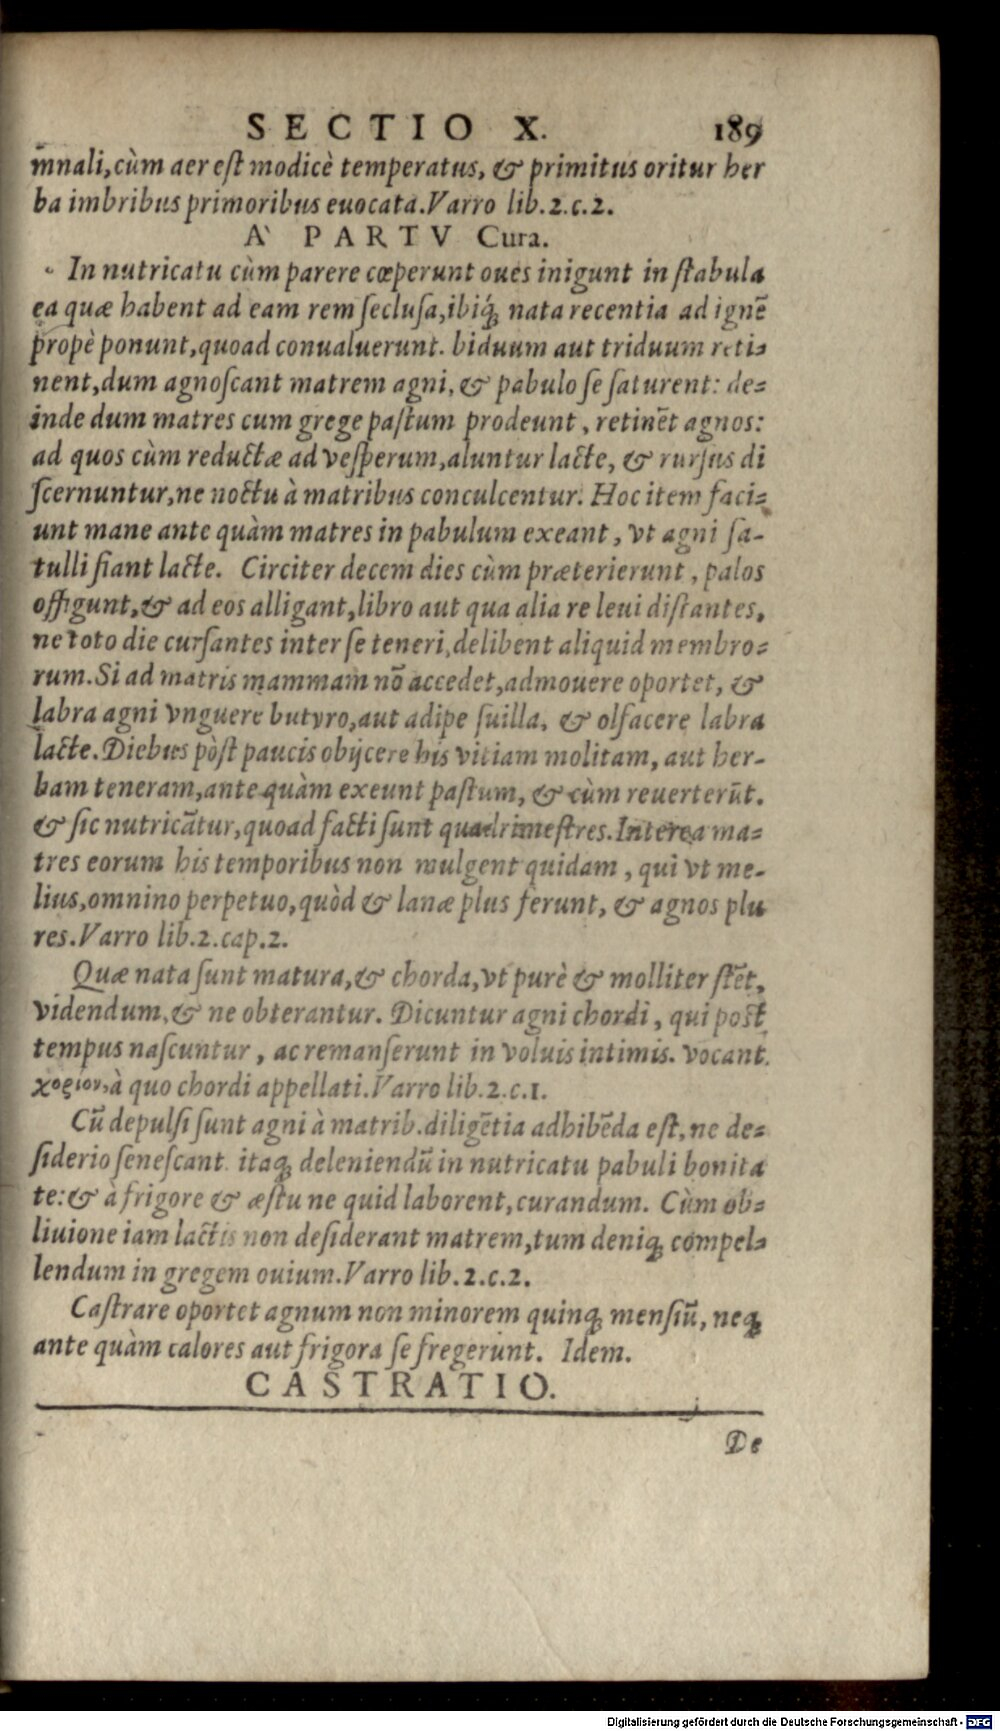 SECTIO X. 189
m̄nali, cùm aer est modicè temperatus, & primitus oritur her
ba imbribus primoribus euocata. Varro lib. 2. c. 2.
A` PARTV Cura.
In nutricatu cùm parere cœperunt oues inigunt in stabula
ea quæ habent ad eam rem seclusa, ibiq́; nata recentia ad ignē
propè ponunt, quoad conualuerunt. biduum aut triduum reti-
nent, dum agnoscant matrem agni, & pabulo se saturent: de-
inde dum matres cum grege pastum prodeunt, retinēt agnos:
ad quos cùm reductæ ad vesperum, aluntur lacte, & rursus di
scernuntur, ne noctu à matribus conculcentur. Hoc item faci-
unt mane ante quàm matres in pabulum exeant, vt agni sa-
tulli fiant lacte. Circiter decem dies cùm præterierunt, palos
offigunt, & ad eos alligant, libro aut qua alia re leui distantes,
ne toto die cursantes inter se teneri, delibent aliquid membro-
rum. Si ad matris mammam nō accedet, admouere oportet, &
labra agni vnguere butyro, aut adipe suilla, & olfacere labra
lacte. Diebus pòst paucis obijcere his viciam molitam, aut her-
bam teneram, ante quàm exeunt pastum, & cùm reuerterūt.
& sic nutricātur, quoad facti sunt quadrimestres. Interea ma-
tres eorum his temporibus non mulgent quidam, qui vt me-
lius, omnino perpetuo, quòd & lanæ plus ferunt, & agnos plu
res. Varro lib. 2. cap. 2.
Quæ nata sunt matura, & chorda, vt purè & molliter stēt,
videndum, & ne obterantur. Dicuntur agni chordi, qui post
tempus nascuntur, ac remanserunt in voluis intimis. vocant
χοριον, à quo chordi appellati. Varro lib. 2. c. 1.
Cū depulsi sunt agni à matrib. diligētia adhibēda est, ne de-
siderio senescant. itaq; deleniendū in nutricatu pabuli bonita
te: & à frigore & æstu ne quid laborent, curandum. Cùm ob-
liuione iam lactis non desiderant matrem, tum deniq; compel-
lendum in gregem ouium. Varro lib. 2. c. 2.
Castrare oportet agnum non minorem quinq; mensiū, neq;
ante quàm calores aut frigora se fregerunt. Idem.
CASTRATIO.
De
Digitalisierung gefördert durch die Deutsche Forschungsgemeinschaft - DFG